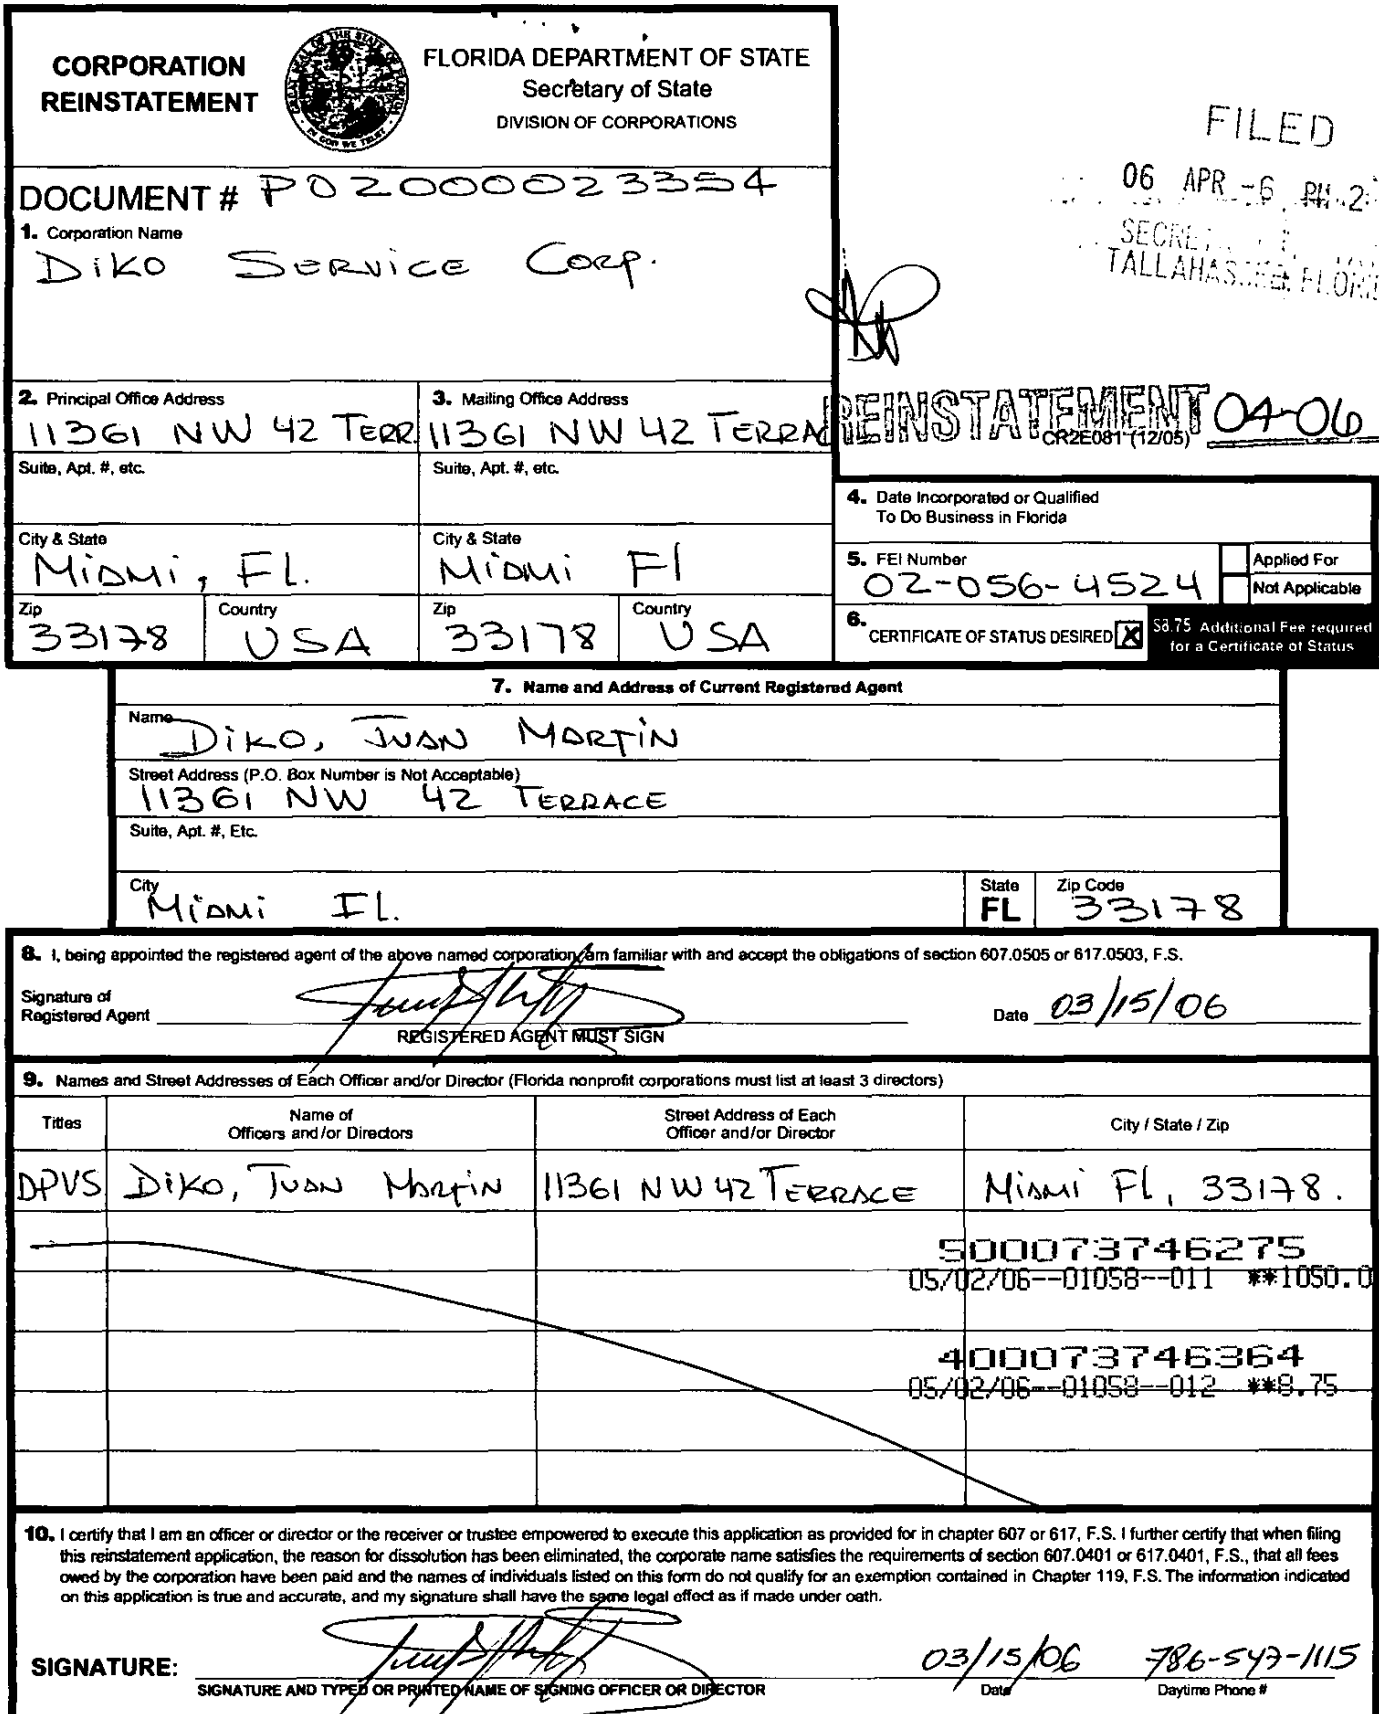 CORPORATION
REINSTATEMENT
FLORIDA DEPARTMENT OF STATE
Secretary of State
DIVISION OF CORPORATIONS
FILED
06 APR -6 PM 2:
TALLAHASSEE, FLORI
DOCUMENT # P02000023354
1. Corporation Name
DIKO SERVICE CORP.
2. Principal Office Address
11361 NW 42 TERR
3. Mailing Office Address
11361 NW 42 TERRA
REINSTATEMENT 04-06
CR2E081 (12/05)
Suite, Apt. #, etc.
Suite, Apt. #, etc.
4. Date Incorporated or Qualified
To Do Business in Florida
City & State
MIAMI, FL.
City & State
MIAMI Fl
5. FEI Number
02-056-4524
Applied For
Not Applicable
Zip
33178
Country
USA
Zip
33178
Country
USA
6. CERTIFICATE OF STATUS DESIRED X
$8.75 Additional Fee required
for a Certificate of Status
7. Name and Address of Current Registered Agent
Name
DIKO, JUAN MARTIN
Street Address (P.O. Box Number is Not Acceptable)
11361 NW 42 TERRACE
Suite, Apt. #, Etc.
City
MIAMI FL.
State
FL
Zip Code
33178
8. I, being appointed the registered agent of the above named corporation, am familiar with and accept the obligations of section 607.0505 or 617.0503, F.S.
Signature of
Registered Agent
Date 03/15/06
REGISTERED AGENT MUST SIGN
9. Names and Street Addresses of Each Officer and/or Director (Florida nonprofit corporations must list at least 3 directors)
Titles
Name of
Officers and/or Directors
Street Address of Each
Officer and/or Director
City / State / Zip
DPVS DIKO, JUAN MARTIN 11361 NW 42 TERRACE MIAMI Fl, 33178.
500073746275
05/02/06--01058--011 **1050.0
400073746364
05/02/06--01058--012 **8.75
10. I certify that I am an officer or director or the receiver or trustee empowered to execute this application as provided for in chapter 607 or 617, F.S. I further certify that when filing
this reinstatement application, the reason for dissolution has been eliminated, the corporate name satisfies the requirements of section 607.0401 or 617.0401, F.S., that all fees
owed by the corporation have been paid and the names of individuals listed on this form do not qualify for an exemption contained in Chapter 119, F.S. The information indicated
on this application is true and accurate, and my signature shall have the same legal effect as if made under oath.
SIGNATURE:
03/15/06 786-547-1115
SIGNATURE AND TYPED OR PRINTED NAME OF SIGNING OFFICER OR DIRECTOR
Date
Daytime Phone #